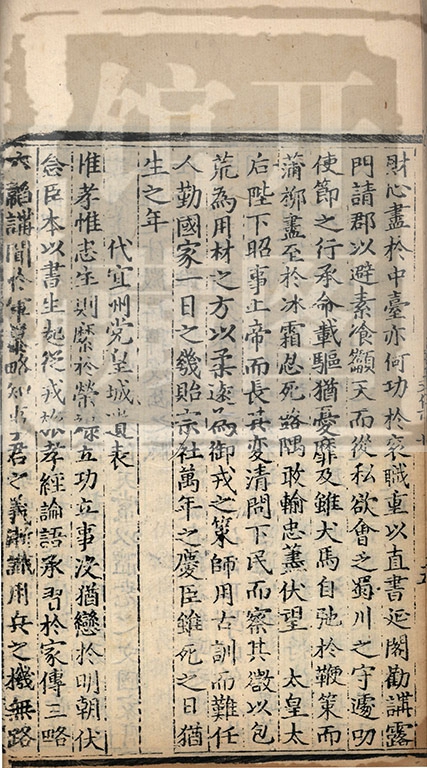 財心盡於中臺亦何功於袞職重以直書延閣勸講露
門請郡以避素飡顲天而從私欲會之蜀川之守遽叨
使節之行承命載驅猶憂靡及雖犬馬自弛於鞭策而
蒲柳盡至於冰霜忍死路隅敢輸忠藎伏望 太皇太
后陛下昭事上帝而長其變清問下民而察其微以包
荒為用材之方以柔逺為御戎之策師用古訓而難任
人勤國家一日之幾貽宗社萬年之慶臣雖死之日猶
生之年
代宜州党皇城遺表
惟孝惟忠生則縻於榮祿立功立事沒猶戀於明朝伏
念臣本以書生起從戎旅孝經論語承習於家傳三略
六韜講聞於軍 略知事君之義 識用兵之機無路